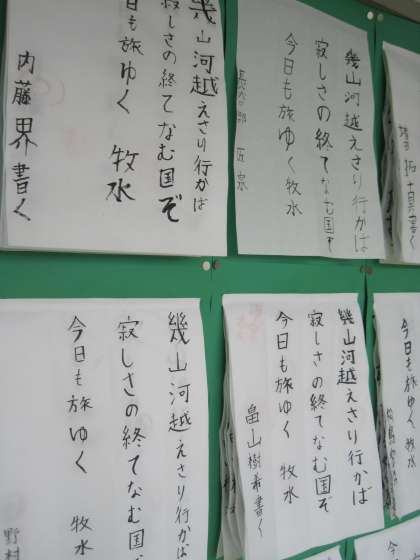 幾山河越えさり行かば
寂しさの終てなむ国ぞ
今日も旅ゆく 牧水
内藤界書く
幾山河越えさり行かば
寂しさの終てなむ国ぞ
今日も旅ゆく牧水
幾山河越えさり行かば
寂しさの終てなむ国
今日も旅ゆく 牧水
野村
幾山河越えさり行かば
寂しさの終てなむ国ぞ
今日も旅ゆく 牧水
畠山樹希書く
今日も旅ゆく 牧水